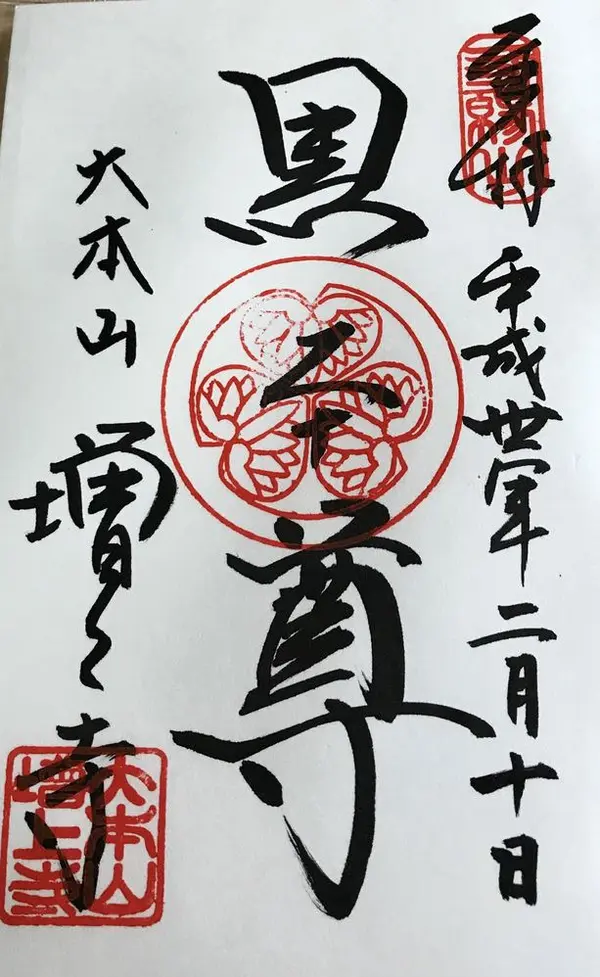 奉拝
三縁山
平成丗年二月十日
黒本尊
大本山
増上寺
大本山
増上寺